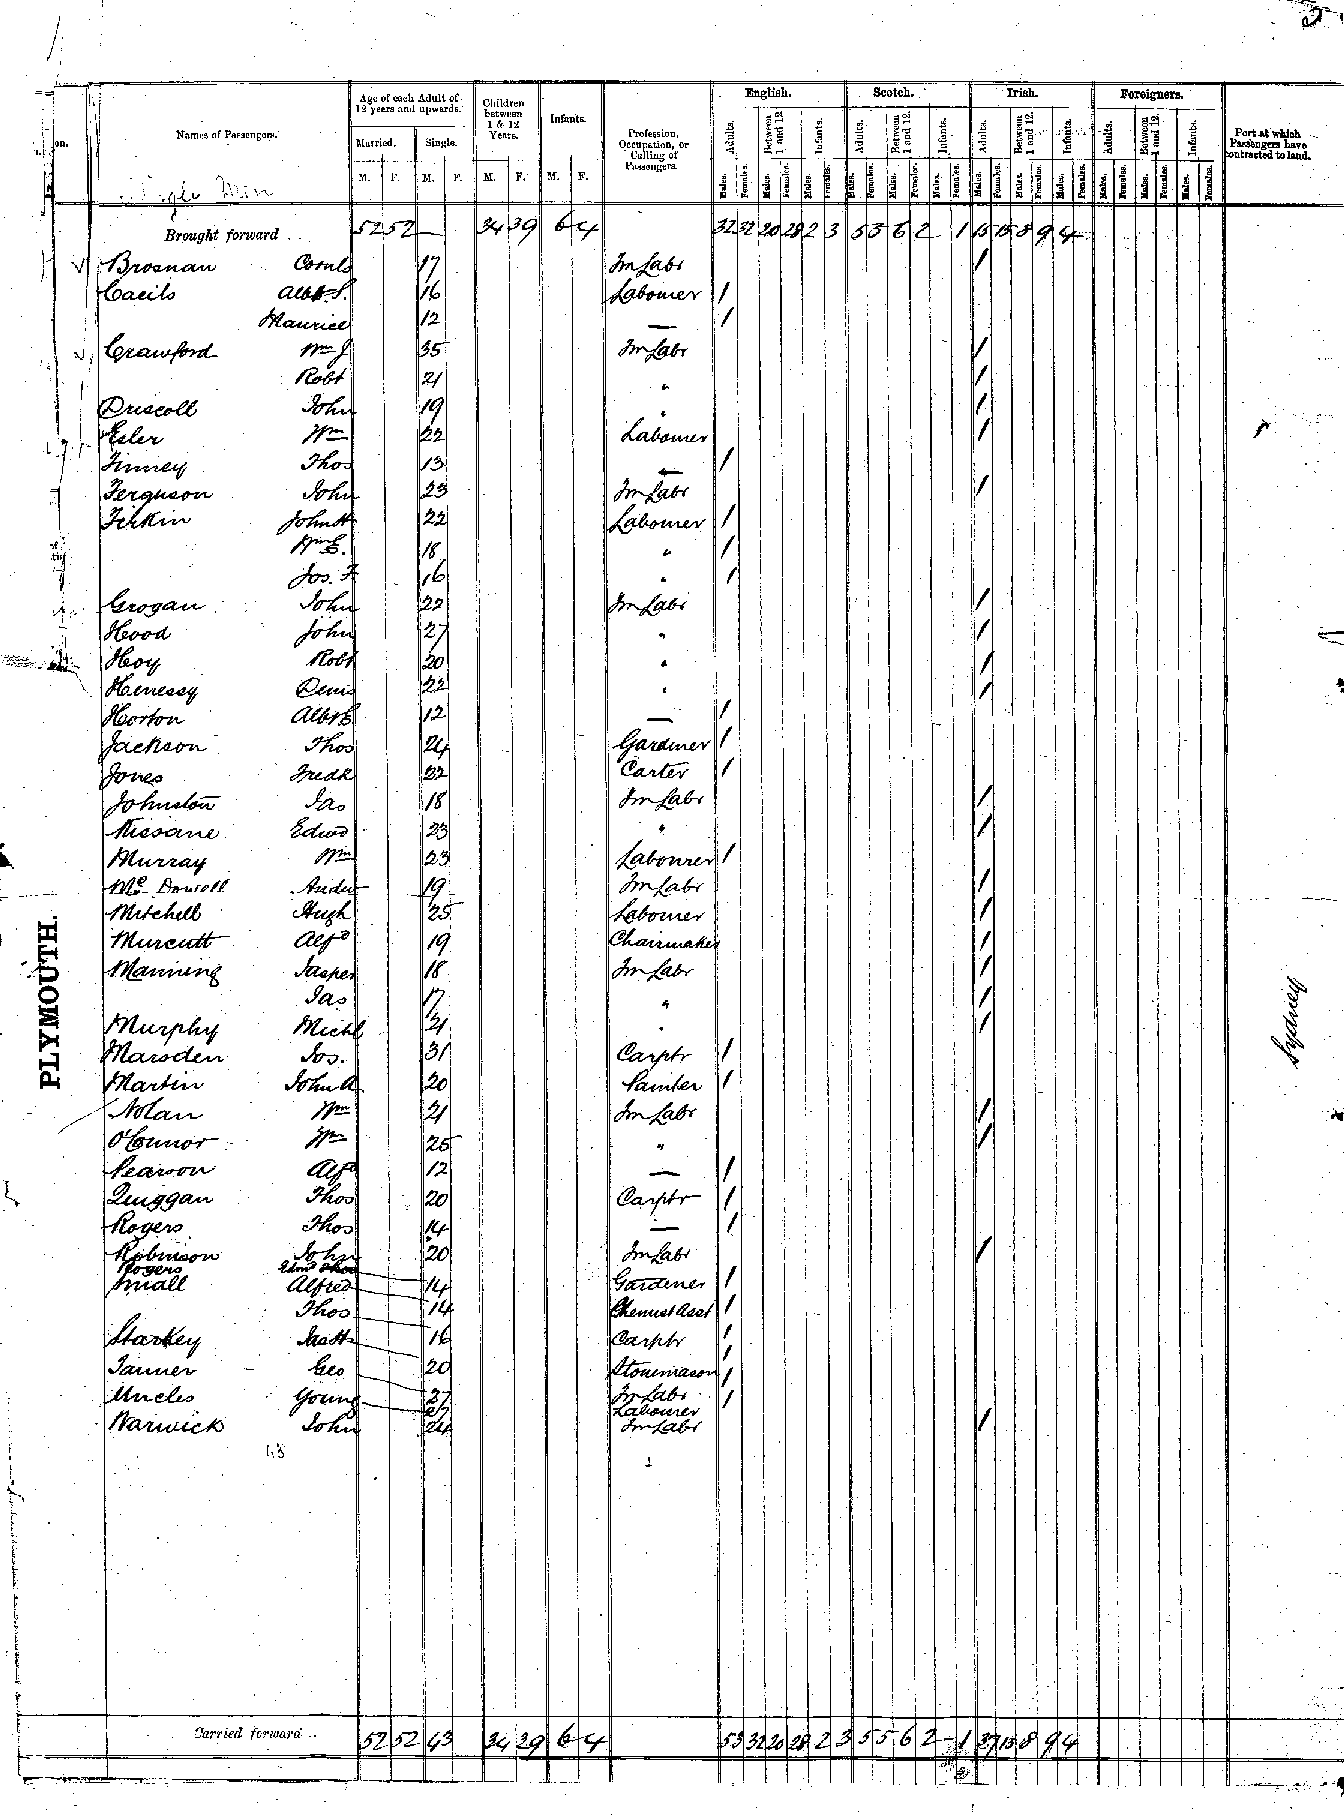 Names of Passengers.
Age of each Adult of 12 years and upwards.
Married. Single.
M. F. M. F.
Children between 1 & 12 Years.
M. F.
Infants.
M. F.
Profession, Occupation, or Calling of Passengers.
English. Scotch. Irish. Foreigners.
Adults. Between 1 and 12. Infants. Adults. Between 1 and 12. Infants. Adults. Between 1 and 12. Infants. Adults. Between 1 and 12. Infants.
Males. Females. Males. Females. Males. Females. Males. Females. Males. Females. Males. Females. Males. Females. Males. Females. Males. Females. Males. Females. Males. Females. Males. Females.
Port at which Passengers have contracted to land.
Single Men
Brought forward .. 52 52 — 34 39 6 4 32 32 20 28 2 3 5 5 6 2 1 15 15 8 9 4
Brosnan Cornls 17 Fm Labr /
Cacils Albt S. 16 Labourer /
Maurice 12 — /
Crawford Wm J 35 Fm Labr /
Robt 21 " /
Driscoll John 19 " /
Esler Wm 22 Labourer /
Finney Thos 13 — /
Ferguson John 23 Fm Labr /
Firkin John H 22 Labourer /
Wm E. 18 " /
Jos. F 16 " /
Grogan John 22 Fm Labr /
Hood John 27 " /
Hoy Robt 20 " /
Henessy Denis 22 " /
Horton Albt E 12 — /
Jackson Thos 24 Gardiner /
Jones Fredk 22 Carter /
Johnston Jas 18 Fm Labr /
Kissane Edwd 23 " /
Murray Wm 23 Labourer /
Mc Dowell Andw 19 Fm Labr /
Mitchell Hugh 25 Labourer /
Murcutt Alfd 19 Chairmaker /
Manning Jasper 18 Fm Labr /
Jas 17 " /
Murphy Michl 21 " /
Marsden Jos. 31 Carptr /
Martin John A 20 Painter /
Nolan Wm 21 Fm Labr /
O'Connor Wm 25 " /
Pearson Alfd 12 — /
Quiggan Thos 20 Carptr /
Rogers Thos 14 — /
Robinson John 20 Fm Labr /
Rogers Edmd Thos
Small Alfred 14 Gardener /
Thos 14 Chemist Asst /
Starkey Jas H 16 Carptr /
Tanner Geo 20 Stonemason /
Uncles Young 27 Fm Labr /
Labourer
Warwick John 24 Fm Labr /
43
PLYMOUTH.
Sydney
Carried forward .. 52 52 43 34 39 6 4 53 32 20 28 2 3 5 5 6 2 - 1 37 15 8 9 4